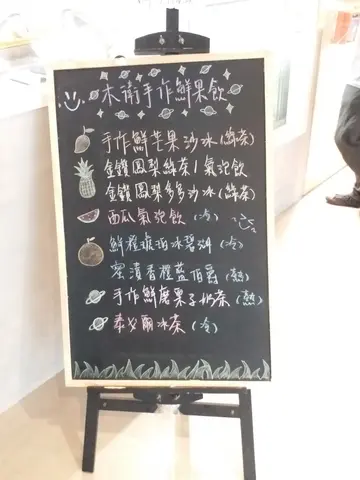 木衛手作鮮果飲
手作鮮芒果沙冰(綠茶)
金鑽鳳梨綠茶/氣泡飲
金鑽鳳梨多多沙冰(綠茶)
西瓜氣泡飲(冷)
鮮橙琥珀冰碧洲(冷)
蜜漬香橙藍伯爵(熱)
手作鮮磨果子奶茶(熱)
泰父爾冰茶(冷)